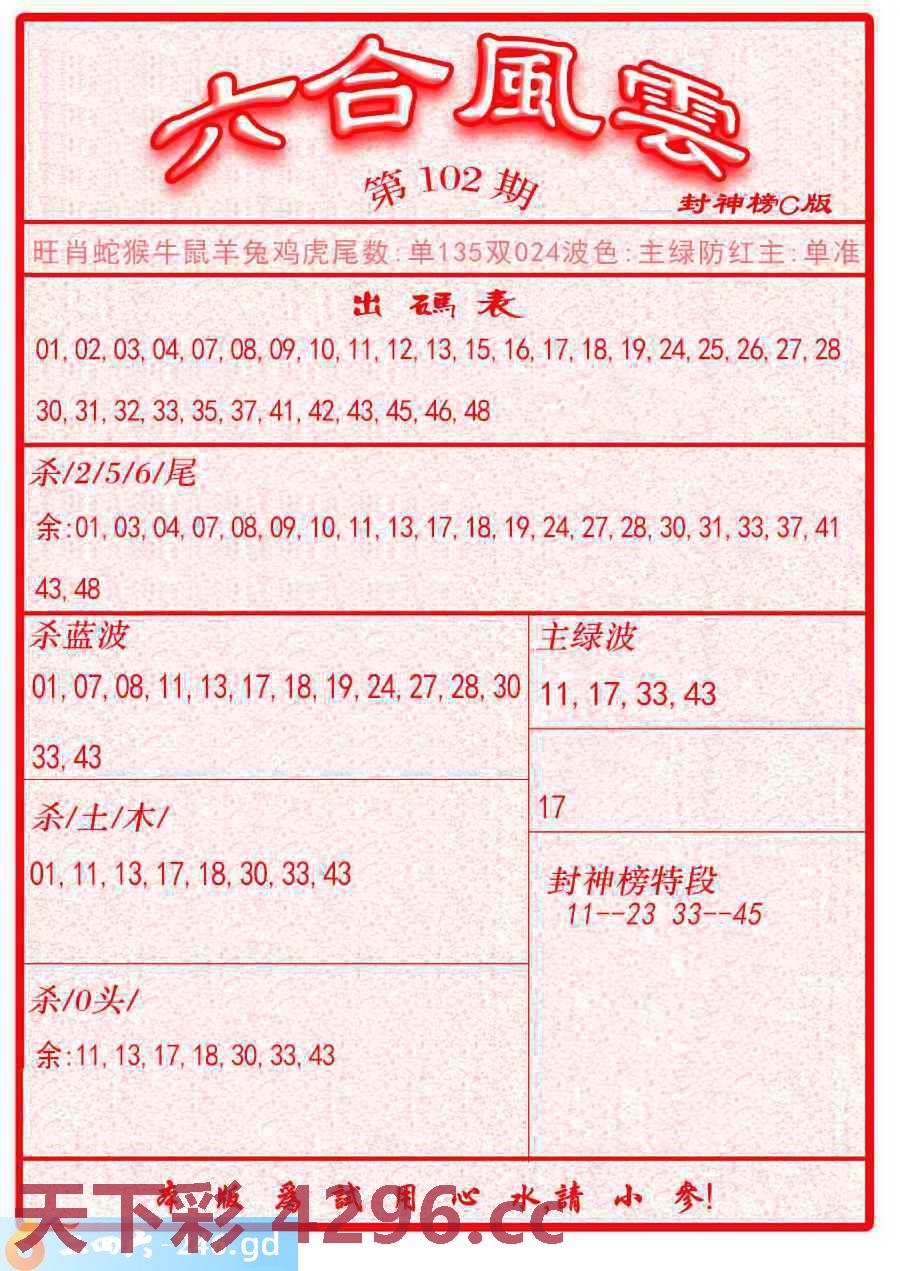 六合風雲
第102期
封神榜C版
旺肖蛇猴牛鼠羊兔鸡虎尾数:单135双024波色:主绿防红主:单准
出碼表
01,02,03,04,07,08,09,10,11,12,13,15,16,17,18,19,24,25,26,27,28
30,31,32,33,35,37,41,42,43,45,46,48
杀/2/5/6/尾
余:01,03,04,07,08,09,10,11,13,17,18,19,24,27,28,30,31,33,37,41
43,48
杀蓝波
01,07,08,11,13,17,18,19,24,27,28,30
33,43
主绿波
11,17,33,43
17
杀/土/木/
01,11,13,17,18,30,33,43
封神榜特段
11--23 33--45
杀/0头/
余:11,13,17,18,30,33,43
本版爲試用心水,請小參!
天下彩 4296.cc
二四六-246.gd